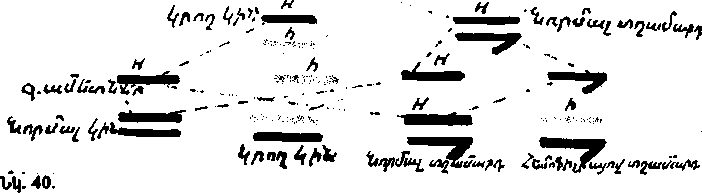 Կրող կին H H Նորմալ տղամարդ
h
H h H
գամետներ
H H h
Նորմալ կին Կրող կին Նորմալ տղամարդ Հեմոֆիլիայով տղամարդ
Նկ. 40.